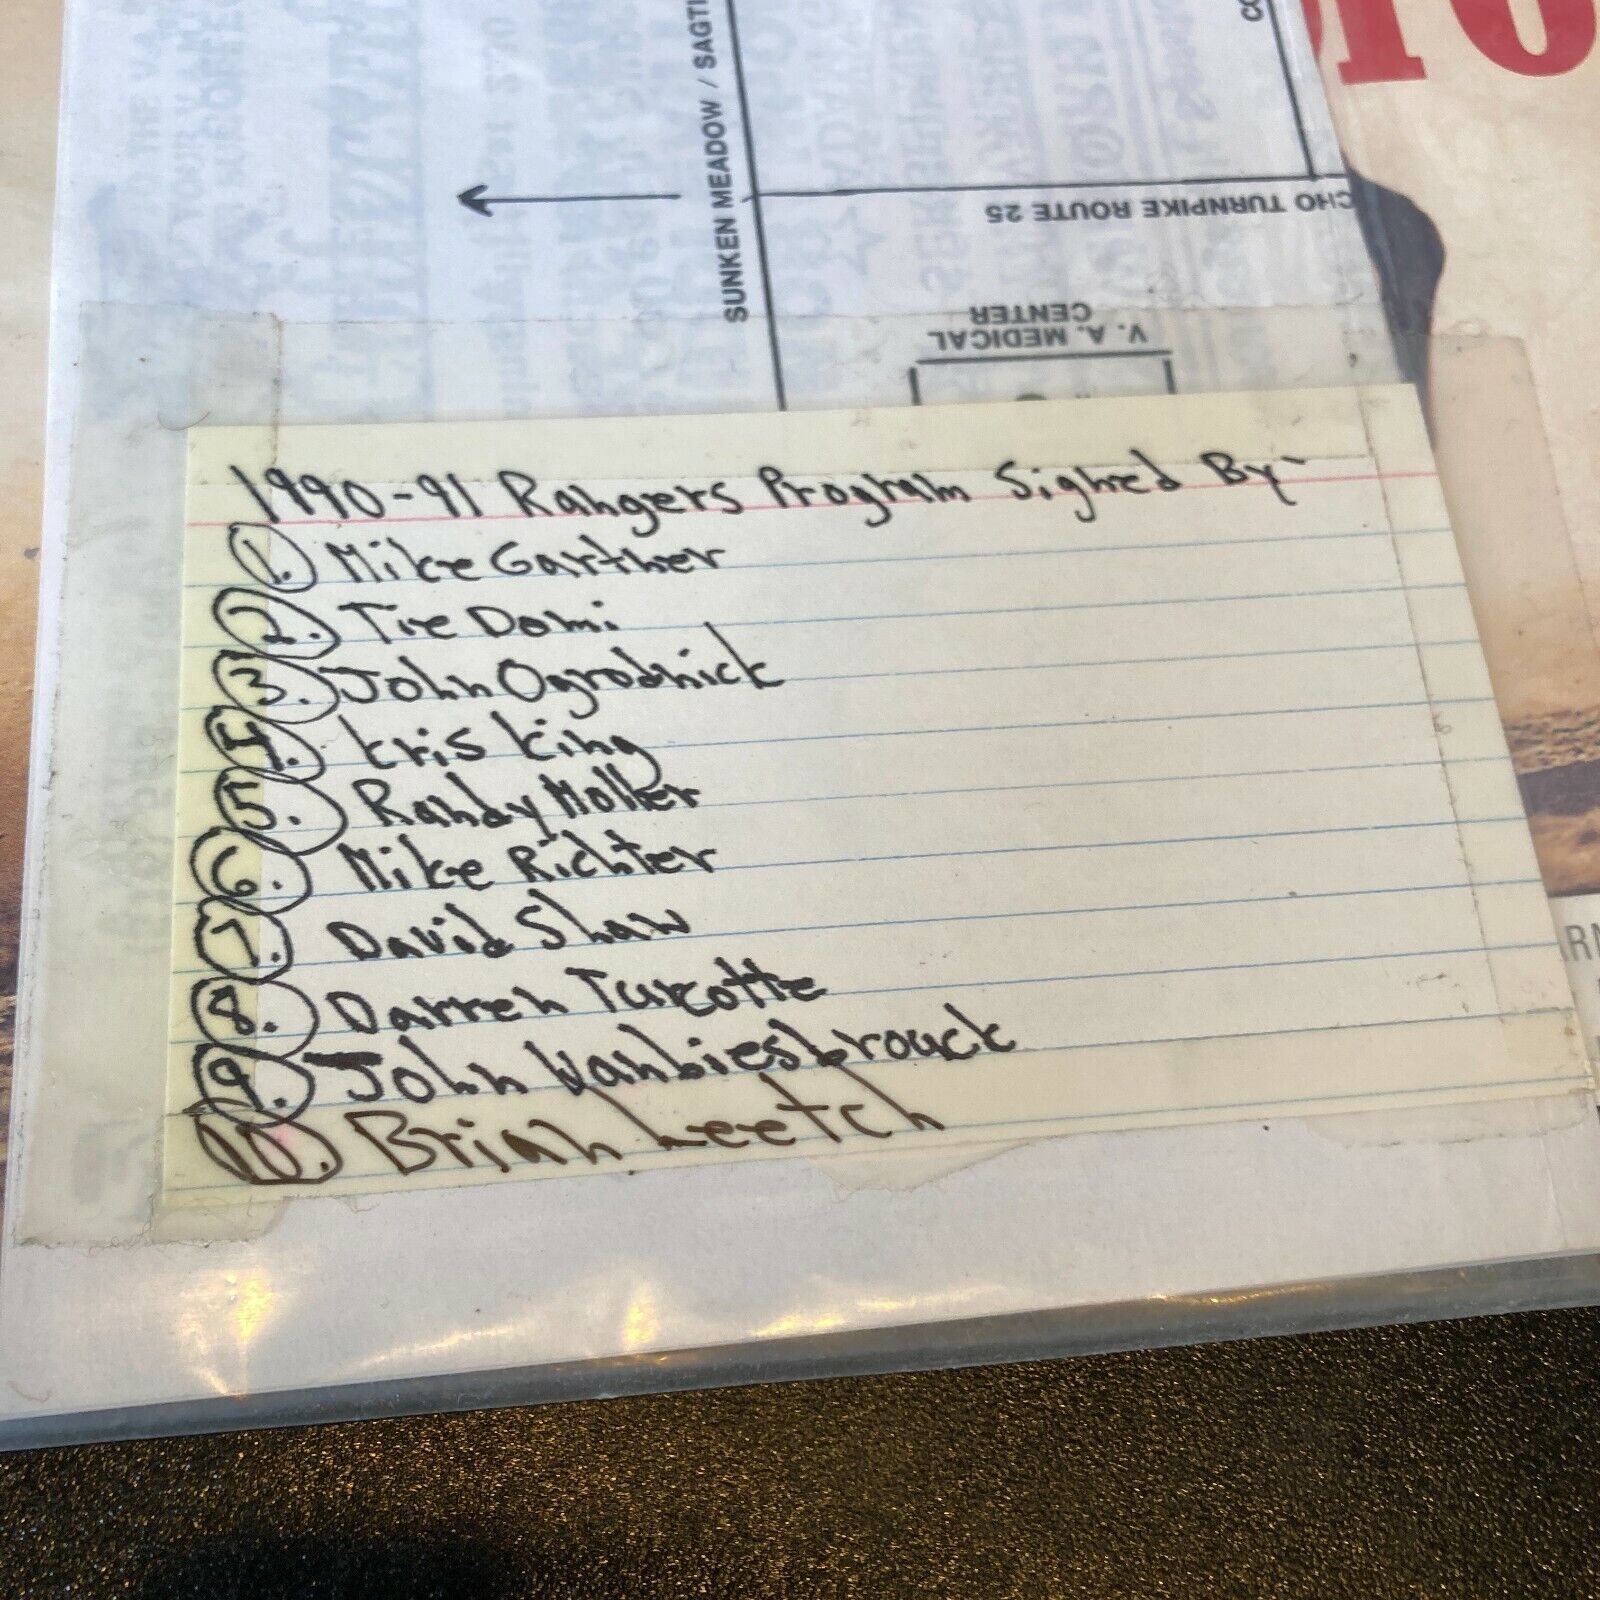 SUNKEN MEADOW / SAGTI
CHO TURNPIKE ROUTE 25
V. A. MEDICAL
CENTER
1990-91 Rangers Program Signed By-
1. Mike Gartner
2. Tie Domi
3. John Ogrodnick
4. Kris King
5. Randy Moller
6. Mike Richter
7. David Shaw
8. Darren Turcotte
9. John Vanbiesbrouck
10. Brian Leetch